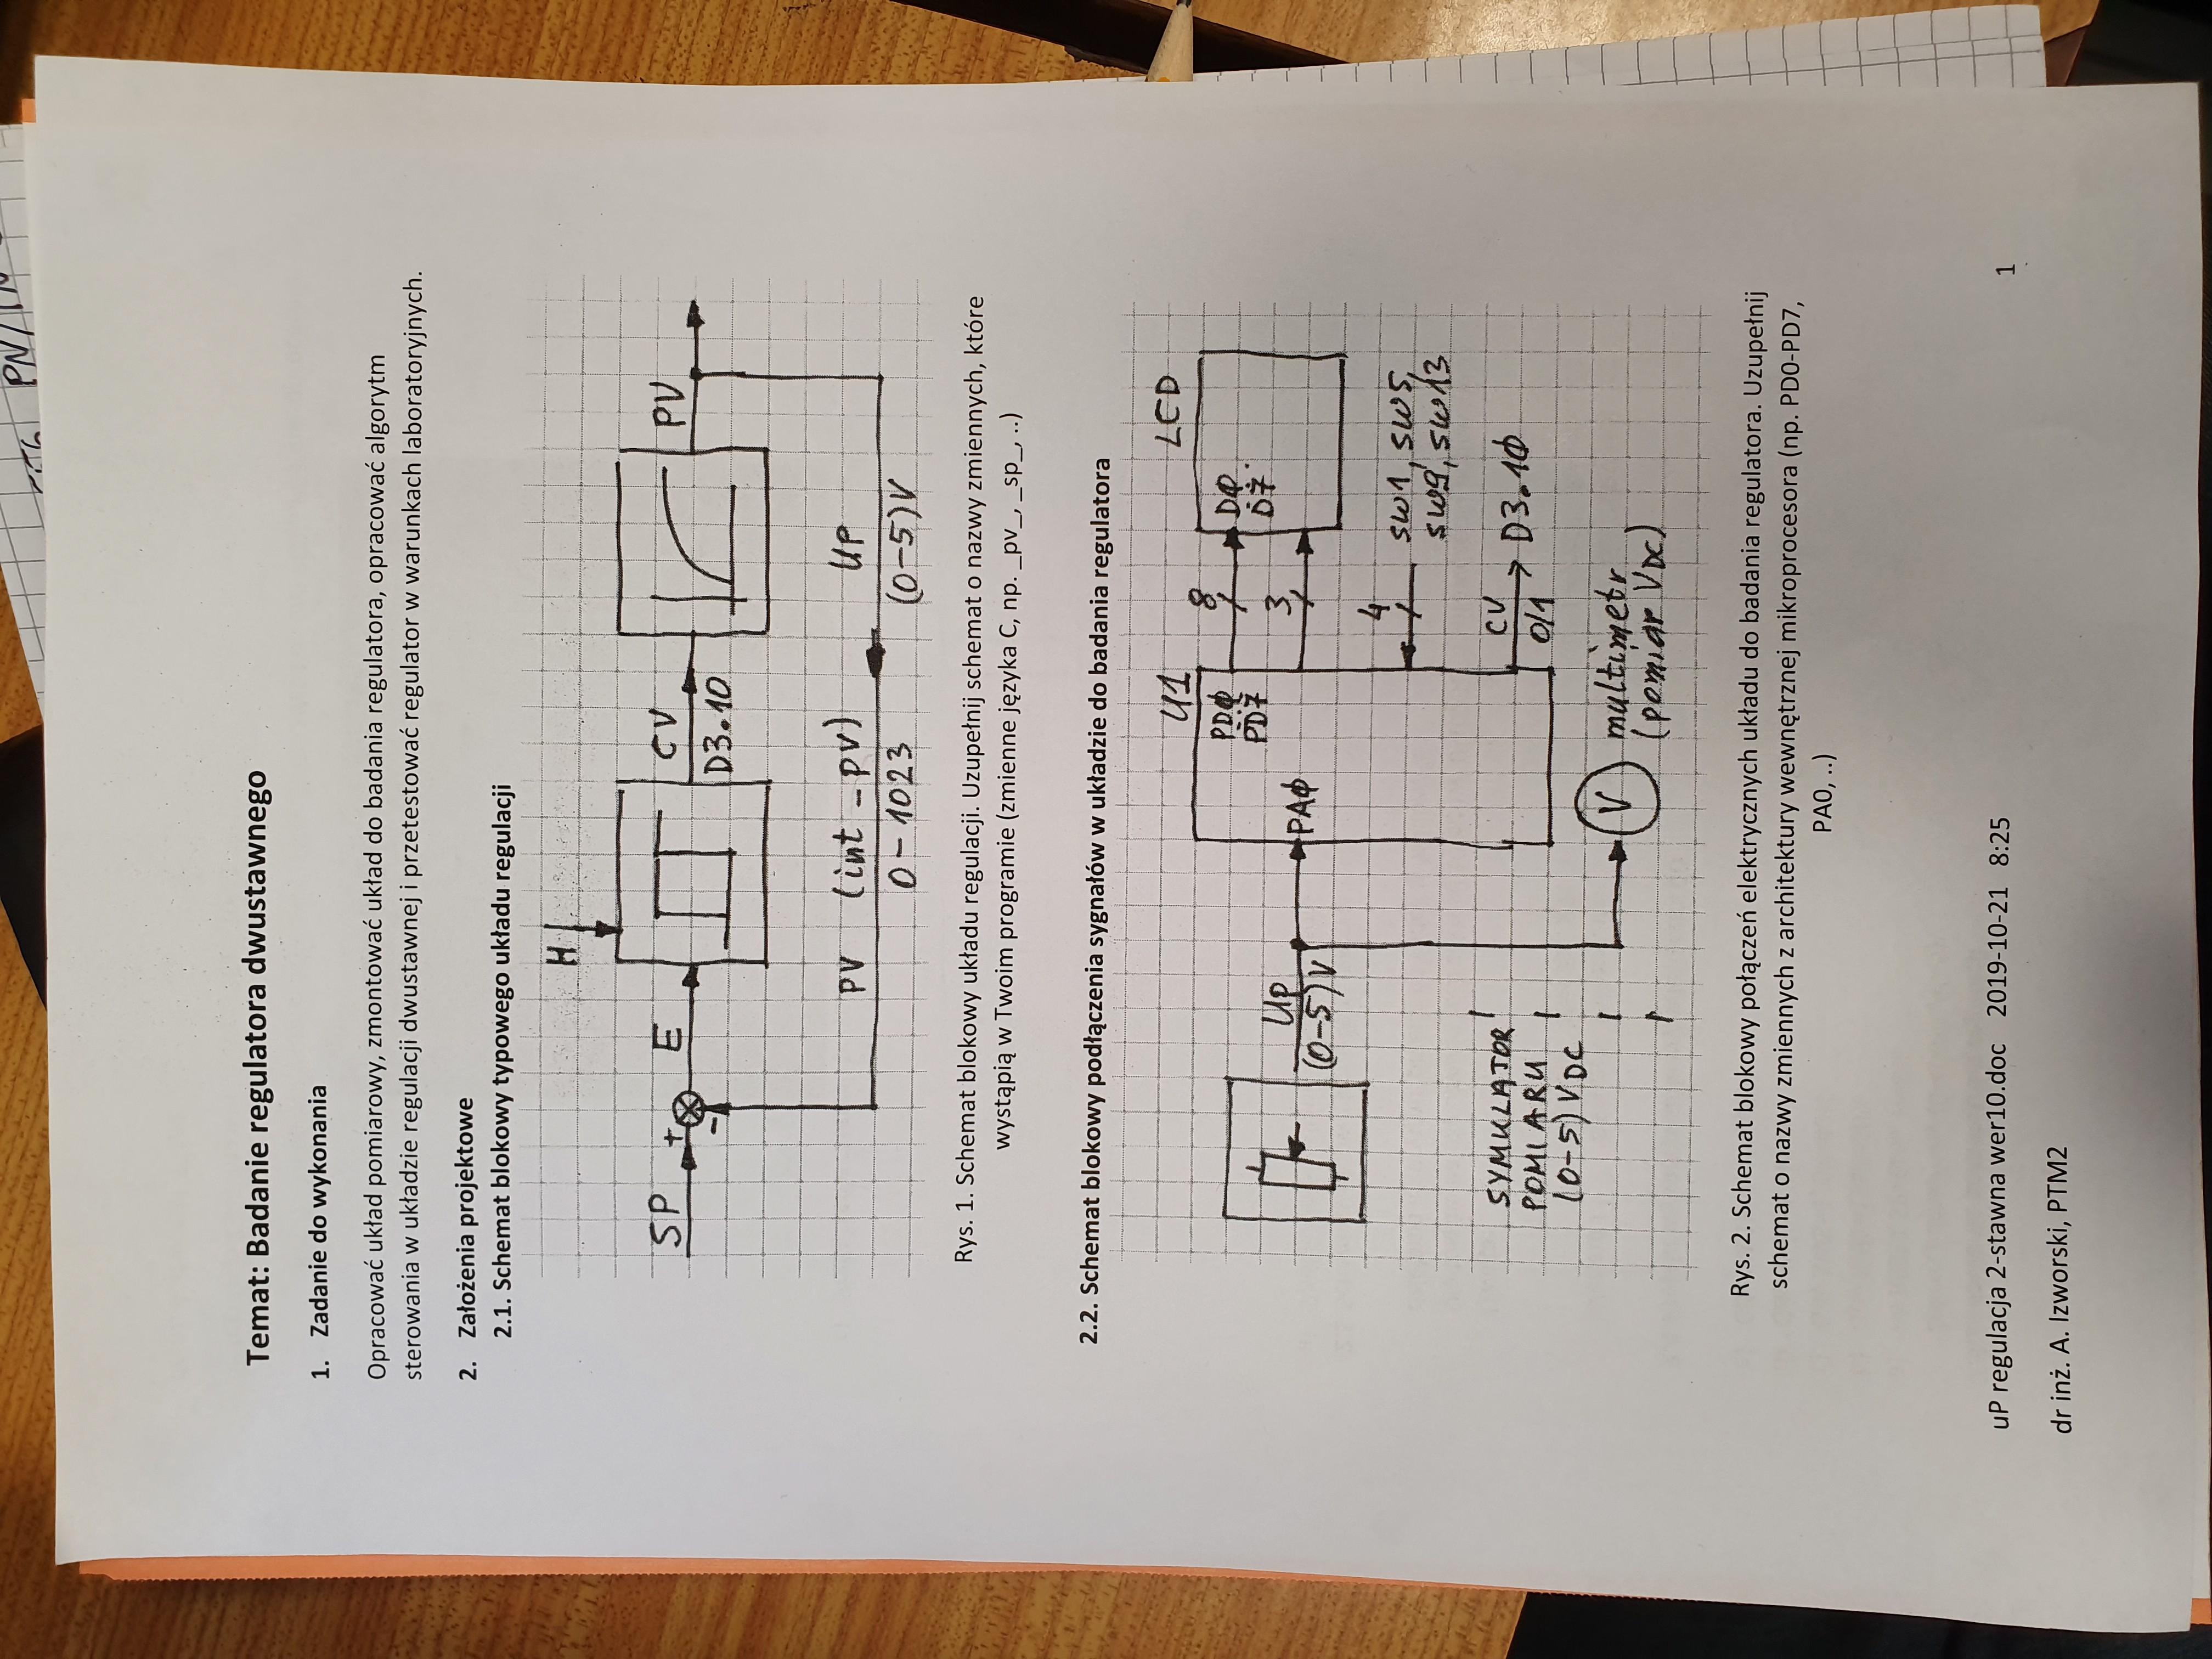 PN/
Temat: Badanie regulatora dwustawnego
1. Zadanie do wykonania
Opracować układ pomiarowy, zmontować układ do badania regulatora, opracować algorytm
sterowania w układzie regulacji dwustawnej i przetestować regulator w warunkach laboratoryjnych.
2. Założenia projektowe
2.1. Schemat blokowy typowego układu regulacji
H
SP + E CV PV
-
D3.10
PV (int_pv) UP
0-1023 (0-5)V
Rys. 1. Schemat blokowy układu regulacji. Uzupełnij schemat o nazwy zmiennych, które
wystąpią w Twoim programie (zmienne języka C, np. _pv_, _sp_, ..)
2.2. Schemat blokowy podłączenia sygnałów w układzie do badania regulatora
U1 LCD
PDØ 8 DØ
PD7 D7
3
UP PAØ
(0-5)V
4 SW1, SW5,
SW9, SW13
SYMULATOR
POMIARU
(0-5)VDC
CV D3.1Ø
0/1
V multimetr
(pomiar VDC)
Rys. 2. Schemat blokowy połączeń elektrycznych układu do badania regulatora. Uzupełnij
schemat o nazwy zmiennych z architektury wewnętrznej mikroprocesora (np. PD0-PD7,
PA0, ..)
uP regulacja 2-stawna wer10.doc 2019-10-21 8:25 1
dr inż. A. Izworski, PTM2